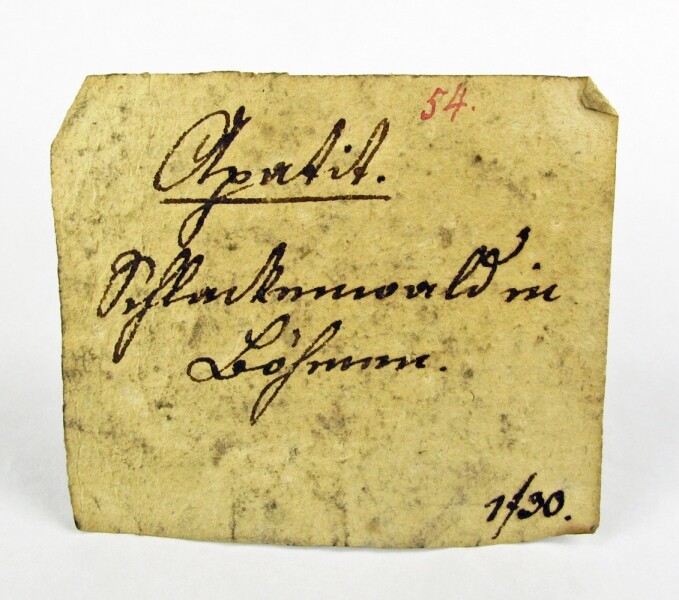 54.
Apatit.
Schlackenwald in
Böhmen.
1/30.